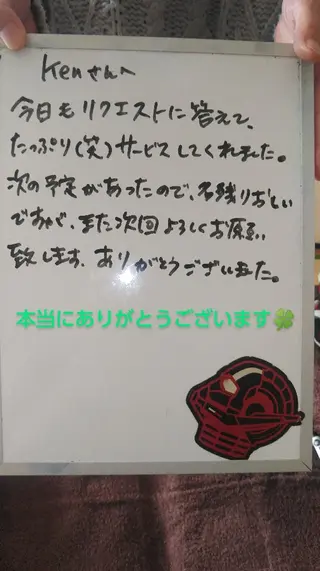 Kenさんへ
今日もリクエストに答えて、
たっぷり(笑)サービスしてくれました。
次の予定があったので、名残りおしい
ですが、また次回よろしくお願い
致します。ありがとうございました。
本当にありがとうございます🍀